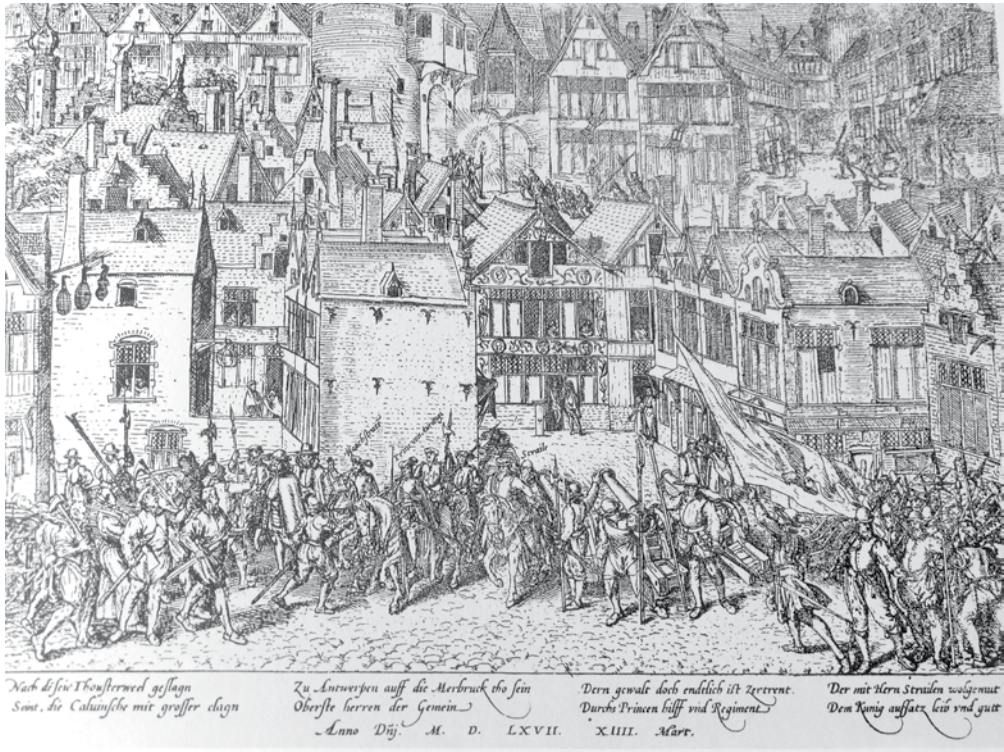 Straile
Nach disem Thousterweel geslagn
Seint, die Caluinsche mit grosser clagn
Zu Antwerpen auff die Merbruck tho sein
Oberste herren der Gemein
Dern gewalt doch endelich ist Zertrent.
Durchs Princen hilff vnd Regiment
Der mit Hern Strailen wolgemut
Dem Kunig auffsatz leib vnd gutt
Anno Dnj. M. D. LXVII. XIIII. Mart.